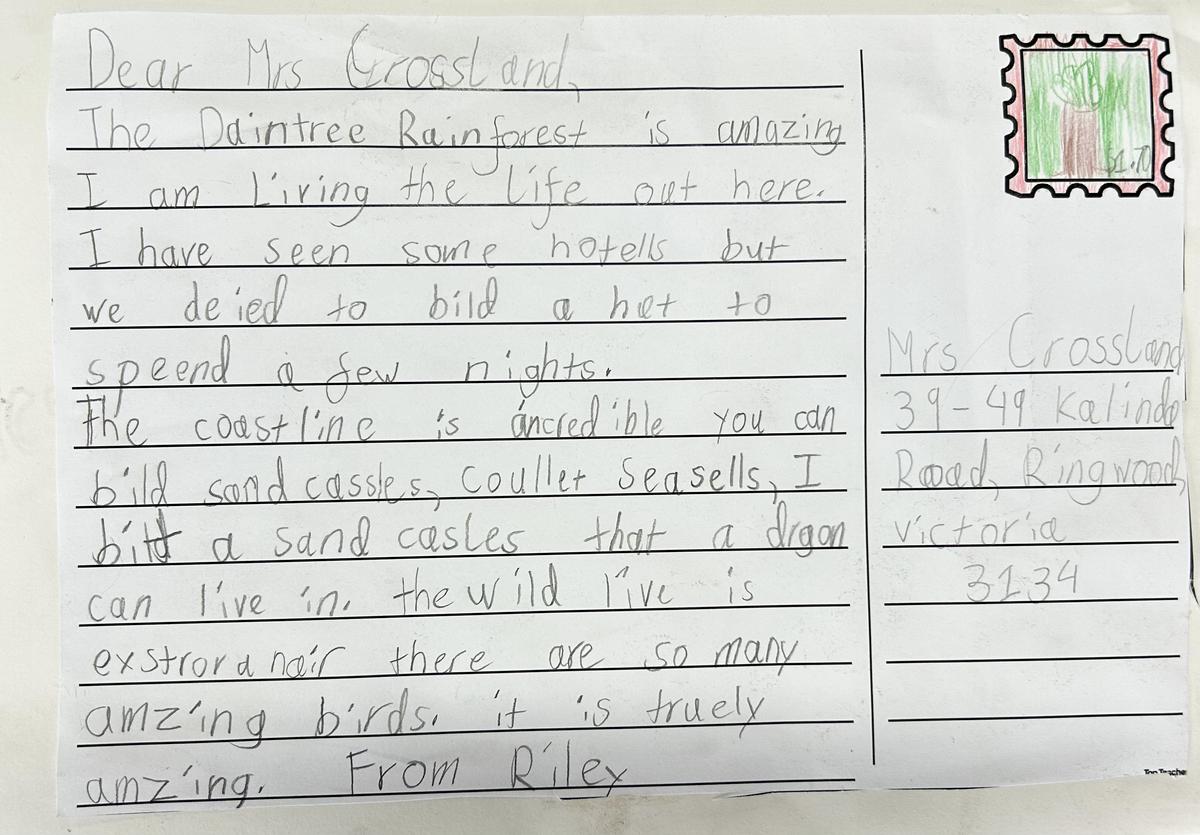 Dear Mrs Crossland,
The Daintree Rainforest is amazing
I am living the life out here.
I have seen some hotells but
we deied to bild a hut to
speend a few nights.
The coastline is áncredible you can
bild sand cassles, coullet seasells, I
bild a sand casles that a drgon
can live in. the wild live is
exstrordnair there are so many
amzing birds. it is truely
amzing. From Riley
$1.70
Mrs Crossland
39-49 Kalinda
Road, Ringwood,
victoria
3134